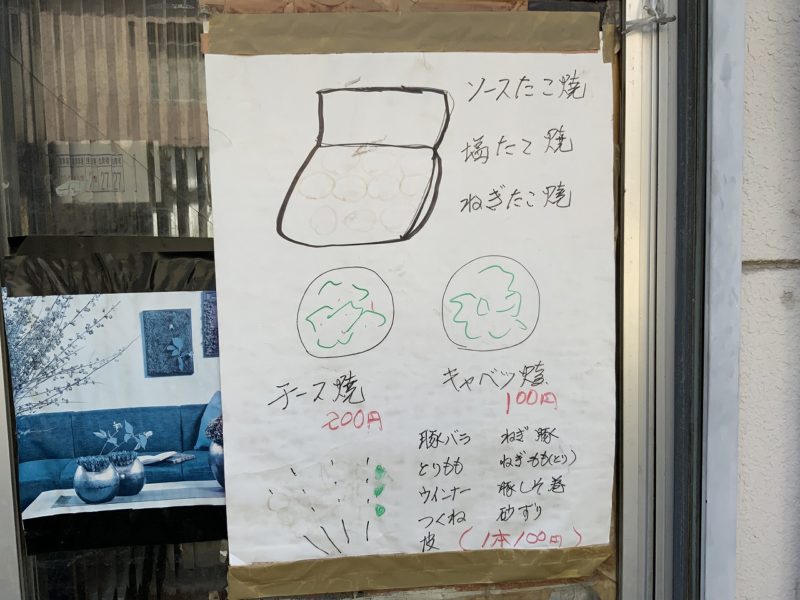 ソースたこ焼
塩たこ焼
ねぎたこ焼
チーズ焼
200円
キャベツ焼
100円
豚バラ ねぎ豚
とりもも ねぎもも(とり)
ウインナー 豚しそ巻
つくね 砂ずり
皮 (1本100円)